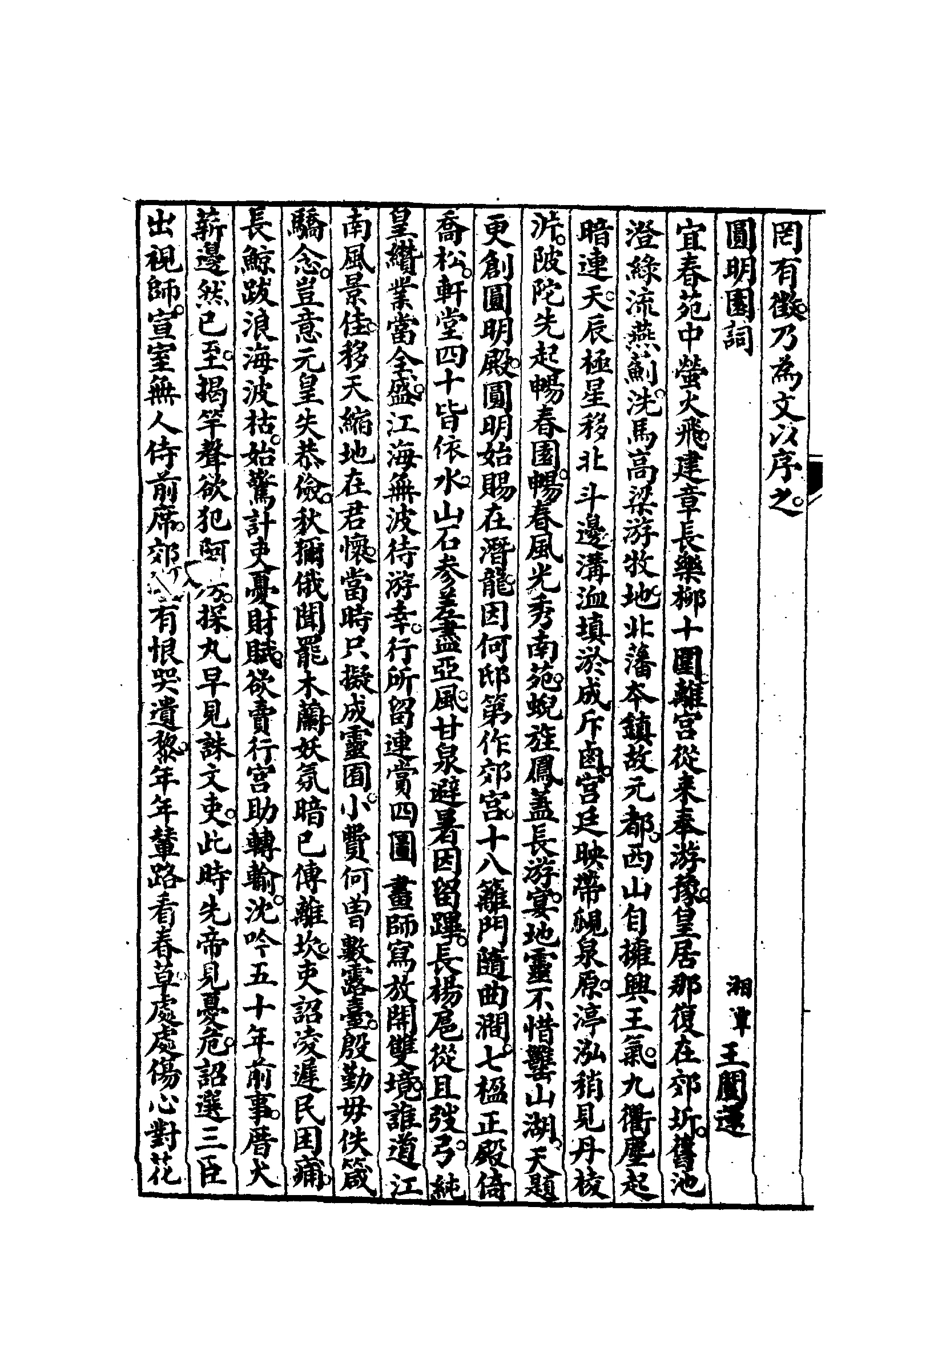 罔有徵乃為文以序之
圓明園詞 湘潭 王闓運
宜春苑中螢火飛建章長樂柳十圍離宮從來奉游豫皇居那復在郊圻舊池
澄綠流燕薊洗馬高梁游牧地北藩本鎮故元都西山自擁興王氣九衢塵起
暗連天辰極星移北斗邊溝洫填淤成斥鹵宮廷映帶覗泉原渟泓稍見丹棱
沜陂陀先起暢春園暢春風光秀南苑蜺旌鳳蓋長游宴地靈不惜甕山湖天題
更創圓明殿圓明始賜在潛龍因何邸第作郊宮十八籬門隨曲澗七楹正殿倚
喬松軒堂四十皆依水山石參差盡亞風甘泉避暑因留蹕長楊扈從且弢弓純
皇纘業當全盛江海無波待游幸行所留連賞四園畫師寫放開雙境誰道江
南風景佳移天縮地在君懷當時只擬成靈囿小費何曾數露臺殷勤毋佚箴
驕念豈意元皇失恭儉秋獮俄聞罷木蘭妖氛暗已傳離坎吏詔凌遲民困痡
長鯨跋浪海波枯始驚計吏憂財賦欲賣行宮助轉輸沈吟五十年前事厝火
薪邊然已至揭竿聲欲犯阿房探丸早見誅文吏此時先帝見憂危詔選三臣
出視師宣室無人侍前席郊有恨哭遺黎年年輦路看春草處處傷心對花